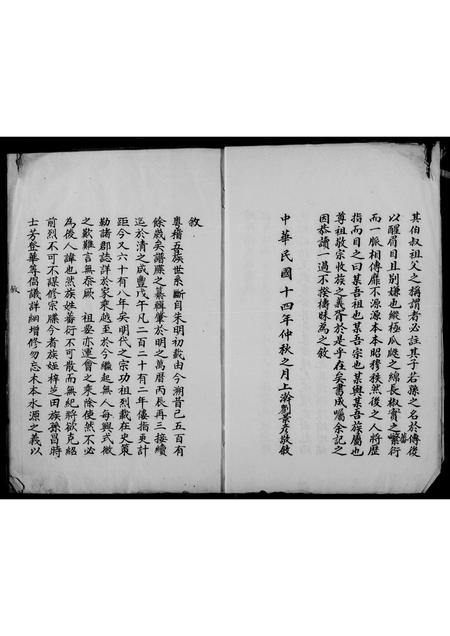 其伯叔祖父之稱謂者必註其子若孫之名於傳後
以醒眉目且別嫌也縱極瓜瓞之綿長椒實之蕃衍
而一脈相傳靡不源源本本昭穆秩然後之人將歷
指而目之曰某吾祖也某吾宗也某與某吾族屬也
尊祖敬宗收族之義胥於是乎在矣書成囑余記之
因恭讀一過不揆檮昧為之敘
中華民國十四年仲秋之月上澣劉彥敬敘
敘
粵稽吾族世系斷自朱明初載由今溯昔已五百有
餘歲矣譜牒之纂輯肇於明之萬曆丙辰再三接續
迄於清之咸豐戊午凡二百二十有二年僂指更計
距今又六十有八年矣明代之宗功祖烈載在史策
勒諸郡誌詳於家乘越至於今繼起無人每興式微
之歎難言無忝厥祖要亦運會之乘除使然不必
為後人諱也然族姓蕃衍不可散而無紀將欲克紹
前烈不可不謀修宗牒今者族姪梓芝曰族孫昌時
士芳登華等倡議詳細增修勿忘木本水源之義以
敘